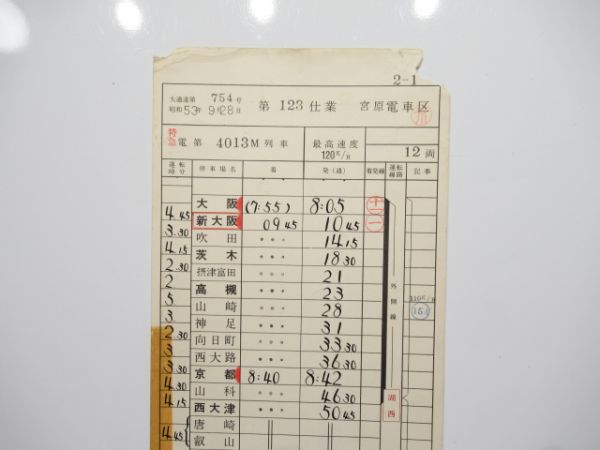 2-1
大通達第 754号
昭和53年 9月28日 第 123 仕業 宮原電車区
特急 電 第 4013M 列車 最高速度 120K/H 12両
運転時分 停車場名 着 発(通) 着発線 運転線路 記事
大阪 (7:55) 8:05 十一
4.45
新大阪 09 45 10 45 一
3.30
吹田 ・・・ 14 15
4.15
茨木 ・・・ 18 30
2.30
摂津富田 ・・・ 21
2
高槻 ・・・ 23
5
山崎 ・・・ 28
3
神足 ・・・ 31
2.30
向日町 ・・・ 33 30
3
西大路 ・・・ 36 30
3.30
京都 8:40 8:42
4.30
山科 ・・・ 46 30
4.15
西大津 ・・・ 50 45
唐崎
4.45
叡山
外側線
湖西
110K/H